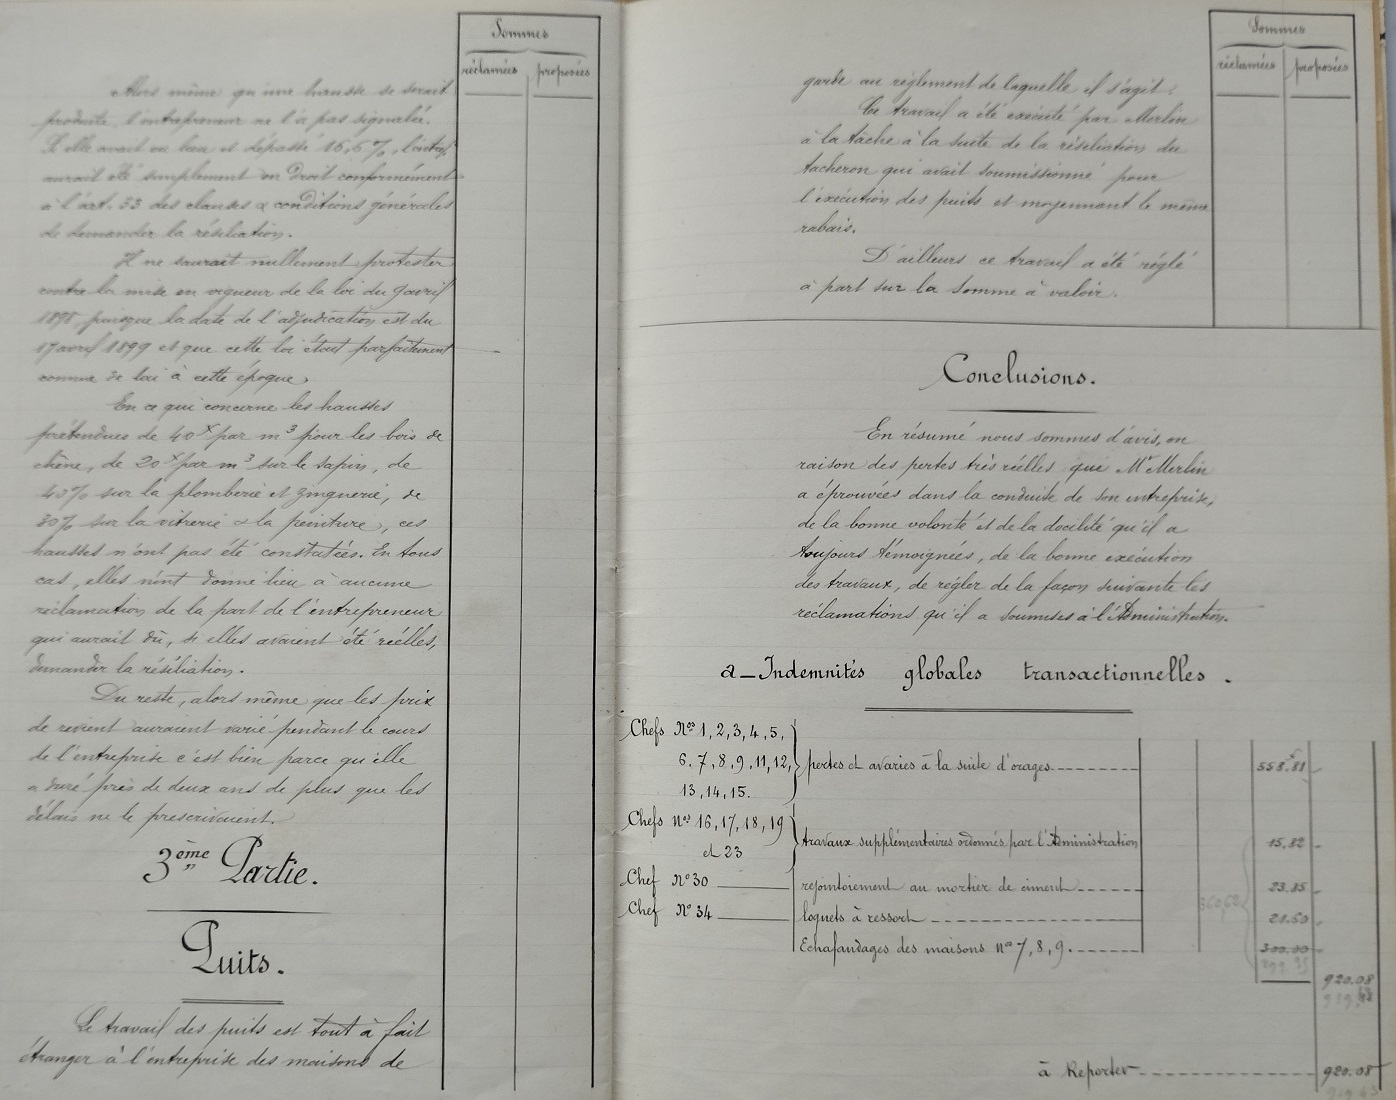 Sommes
réclamées proposées
Alors même qu'une hausse se serait
produite, l'entrepreneur ne l'a pas signalée.
Si elle avait eu lieu et dépassé 16,6 %, l'entrep.
aurait été simplement en droit conformément
à l'art. 33 des clauses & conditions générales
de demander la résiliation.
Il ne saurait nullement protester
contre la mise en vigueur de la loi du 9 avril
1898, puisque la date de l'adjudication est du
17 avril 1899 et que cette loi était parfaitement
connue de lui à cette époque.
En ce qui concerne les hausses
prétendues de 40 f par m3 pour les bois de
chêne, de 20 f par m3 sur le sapin, de
40% sur la plomberie et zinguerie, de
30% sur la vitrerie & la peinture, ces
hausses n'ont pas été constatées. En tous
cas, elles n'ont donné lieu à aucune
réclamation de la part de l'entrepreneur
qui aurait dû, si elles avaient été réelles,
demander la résiliation.
Du reste, alors même que les prix
de revient auraient varié pendant le cours
de l'entreprise c'est bien parce qu'elle
a duré près de deux ans de plus que les
délais ne le prescrivaient.
3ème Partie.
Puits.
Le travail des puits est tout à fait
étranger à l'entreprise des maisons de
Sommes
réclamées proposées
garde au règlement de laquelle il s'agit.
Ce travail a été exécuté par Merlin
à la tâche à la suite de la résiliation du
tacheron qui avait soumissionné pour
l'exécution des puits et moyennant le même
rabais.
D'ailleurs ce travail a été réglé
à part sur la somme à valoir.
Conclusions.
En résumé nous sommes d'avis, en
raison des pertes très réelles que Mr Merlin
a éprouvées dans la conduite de son entreprise,
de la bonne volonté et de la docilité qu'il a
toujours témoignées, de la bonne exécution
des travaux, de régler de la façon suivante les
réclamations qu'il a soumises à l'Administration.
a_Indemnités globales transactionnelles.
Chefs Nos 1, 2, 3, 4, 5,
6, 7, 8, 9, 11, 12, pertes et avaries à la suite d'orages 558.81
13, 14, 15.
Chefs Nos 16, 17, 18, 19
et 23 travaux supplémentaires ordonnés par l'Administration 15.82
Chef No 30 rejointoiement au mortier de ciment 23.85
Chef No 34 loquets à ressort 21.60
360,62
Echafaudages des maisons Nos 7, 8, 9. 300.00
299.35
920.08
919,43
à Reporter 920.08
919.43